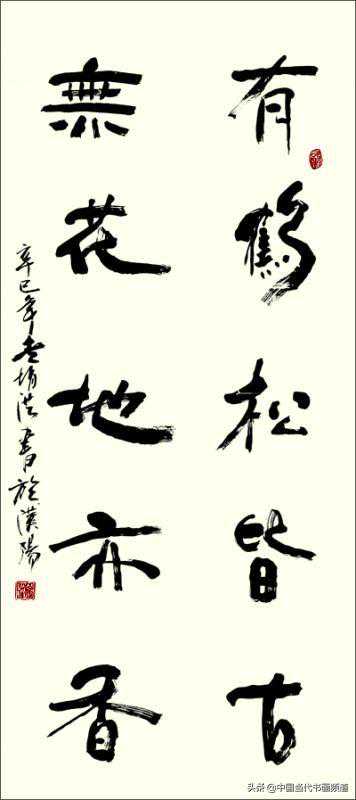 有鶴松皆古
無花地亦香
辛巳年 洪書於漢陽
头条 @中国当代书画频道